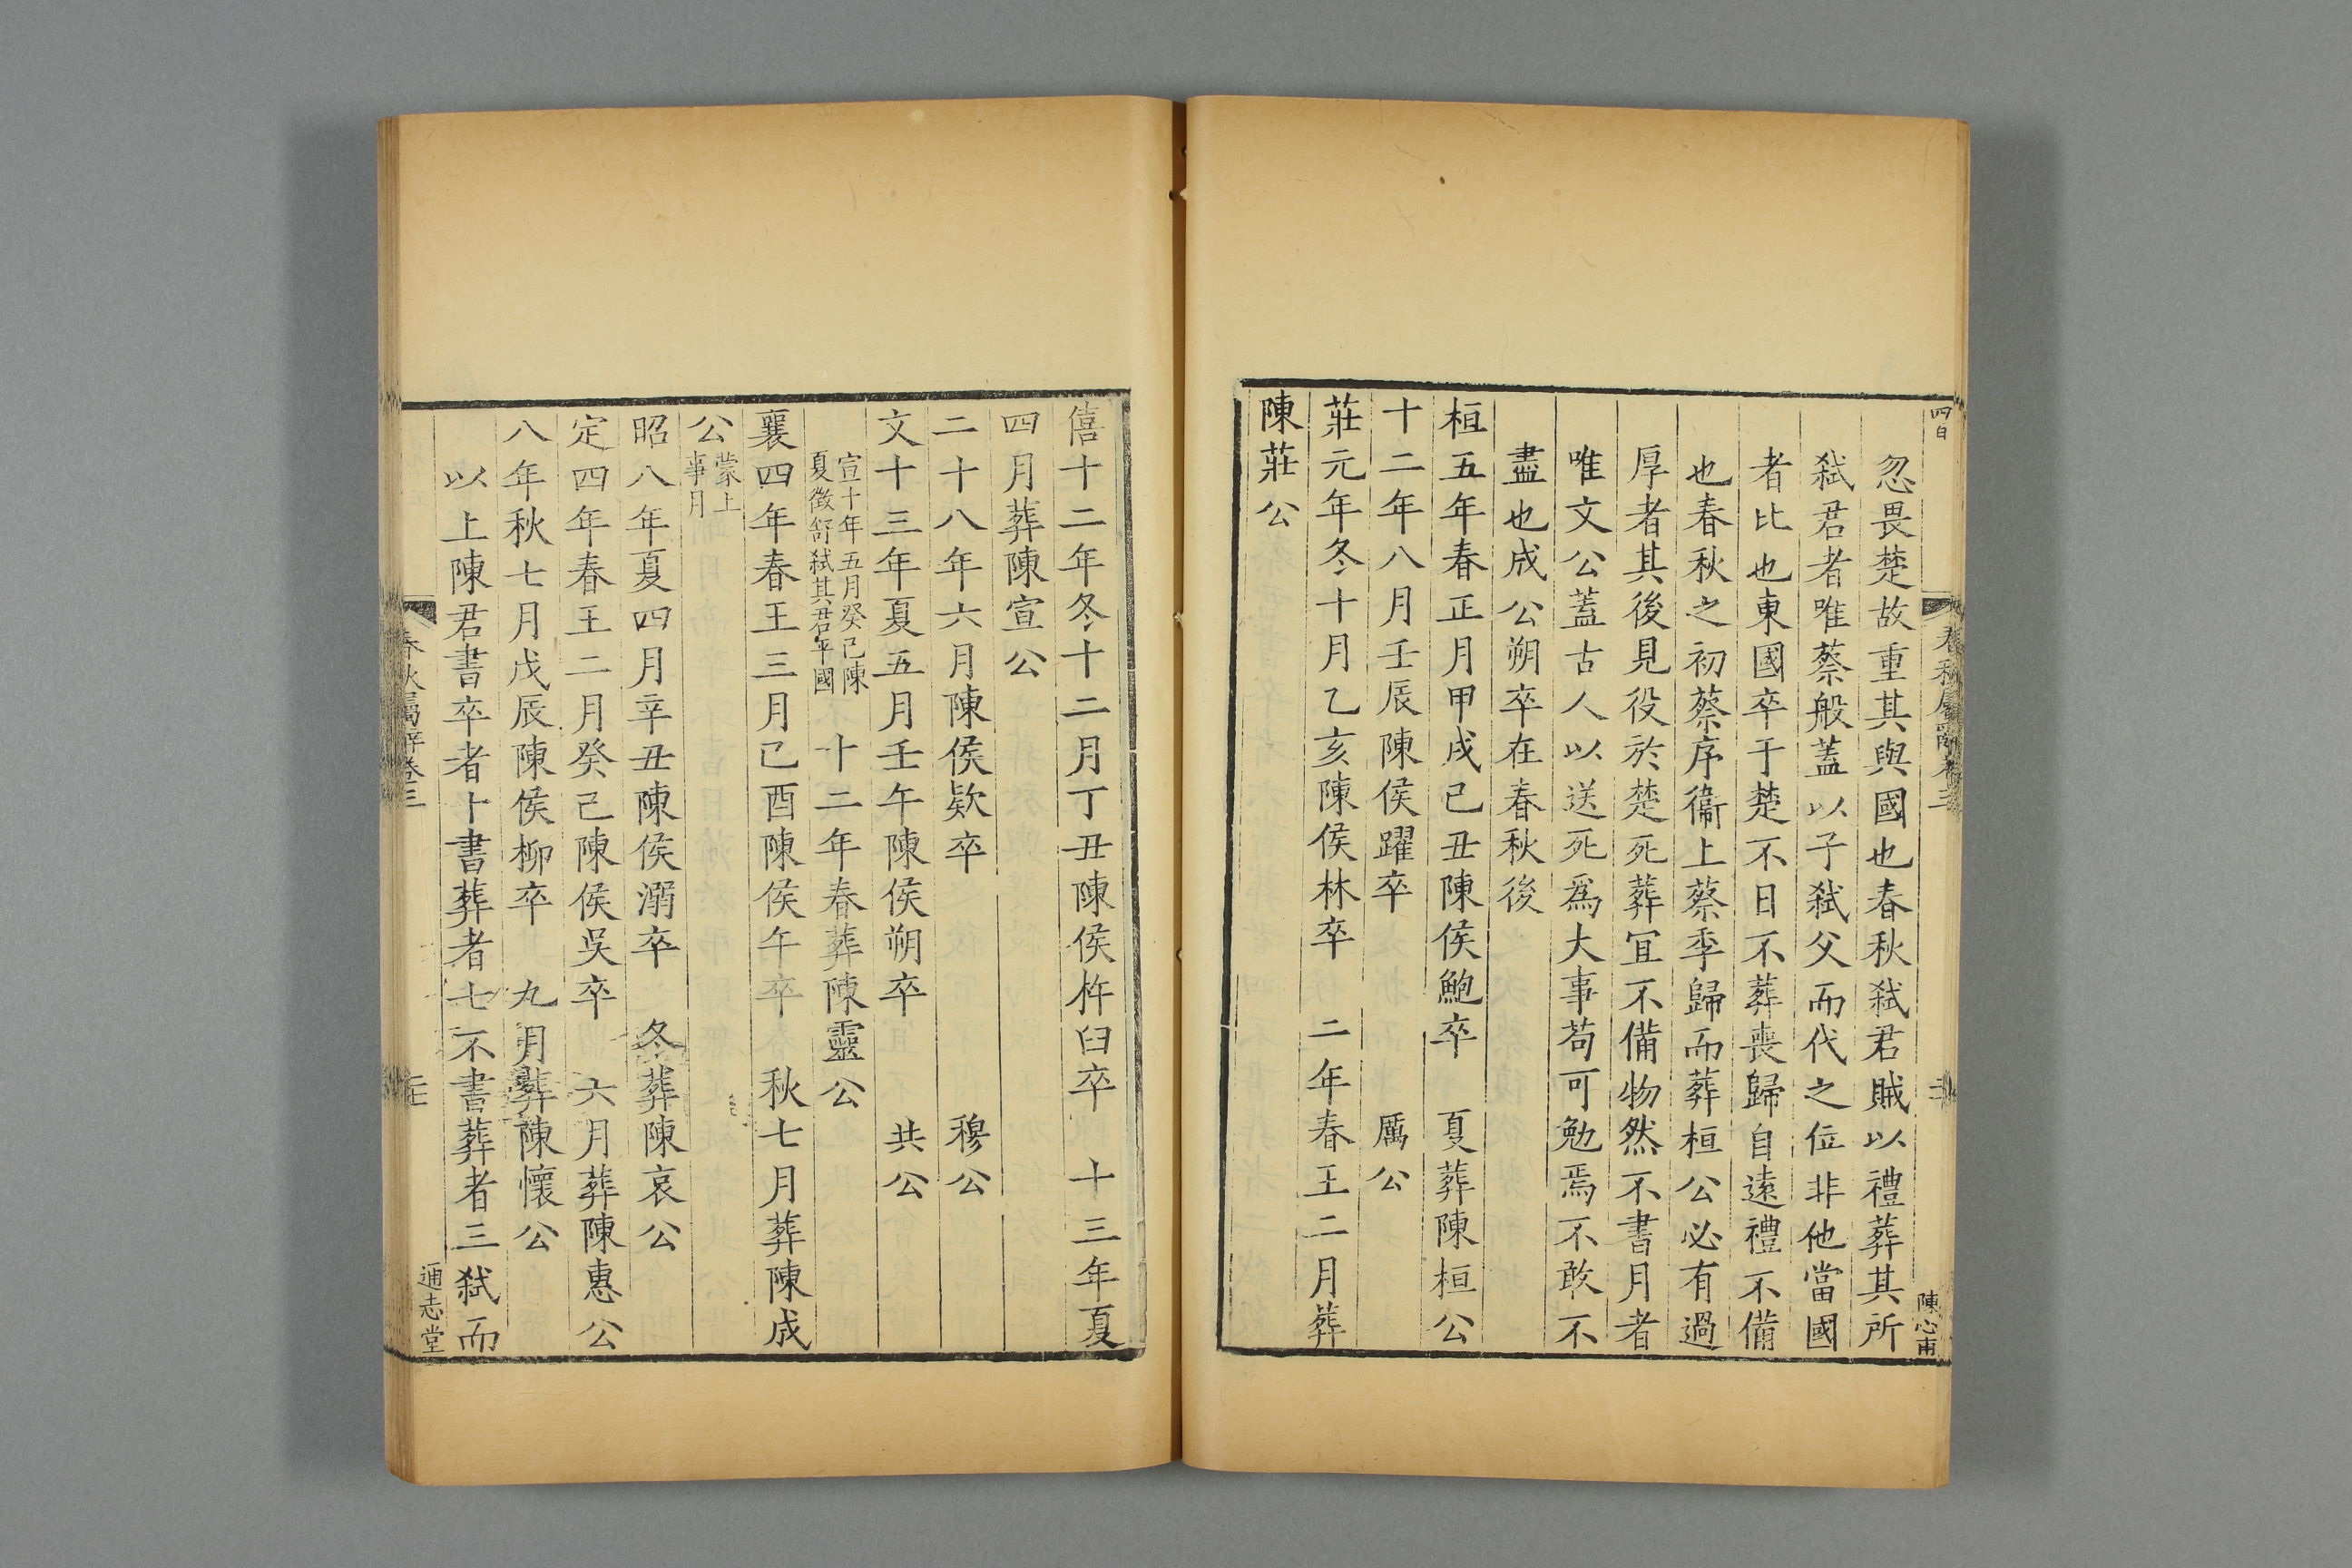 忽畏楚故重其與國也春秋弑君賊以禮葬其所
弑君者唯蔡般蓋以子弑父而代之位非他當國
者比也東國卒于楚不日不葬喪歸自遠禮不備
也春秋之初蔡序衞上蔡季歸而葬桓公必有過
厚者其後見役於楚死葬宜不備物然不書月者
唯文公蓋古人以送死爲大事苟可勉焉不敢不
盡也成公朔卒在春秋後
桓五年春正月甲戌己丑陳侯鮑卒　夏葬陳桓公
十二年八月壬辰陳侯躍卒　厲公
莊元年冬十月乙亥陳侯林卒　二年春王二月葬
陳莊公
四百
春秋屬辭卷三
陳心甫
僖十二年冬十二月丁丑陳侯杵臼卒　十三年夏
四月葬陳宣公
二十八年六月陳侯款卒　穆公
文十三年夏五月壬午陳侯朔卒　共公
宣十年五月癸巳陳
夏徵舒弑其君平國
十二年春葬陳靈公
襄四年春王三月己酉陳侯午卒　秋七月葬陳成
公
蒙上
事月
昭八年夏四月辛丑陳侯溺卒　冬葬陳哀公
定四年春王二月癸巳陳侯吳卒　六月葬陳惠公
八年秋七月戊辰陳侯柳卒　九月葬陳懷公
以上陳君書卒者十書葬者七不書葬者三弑而
春秋屬辭卷三
通志堂